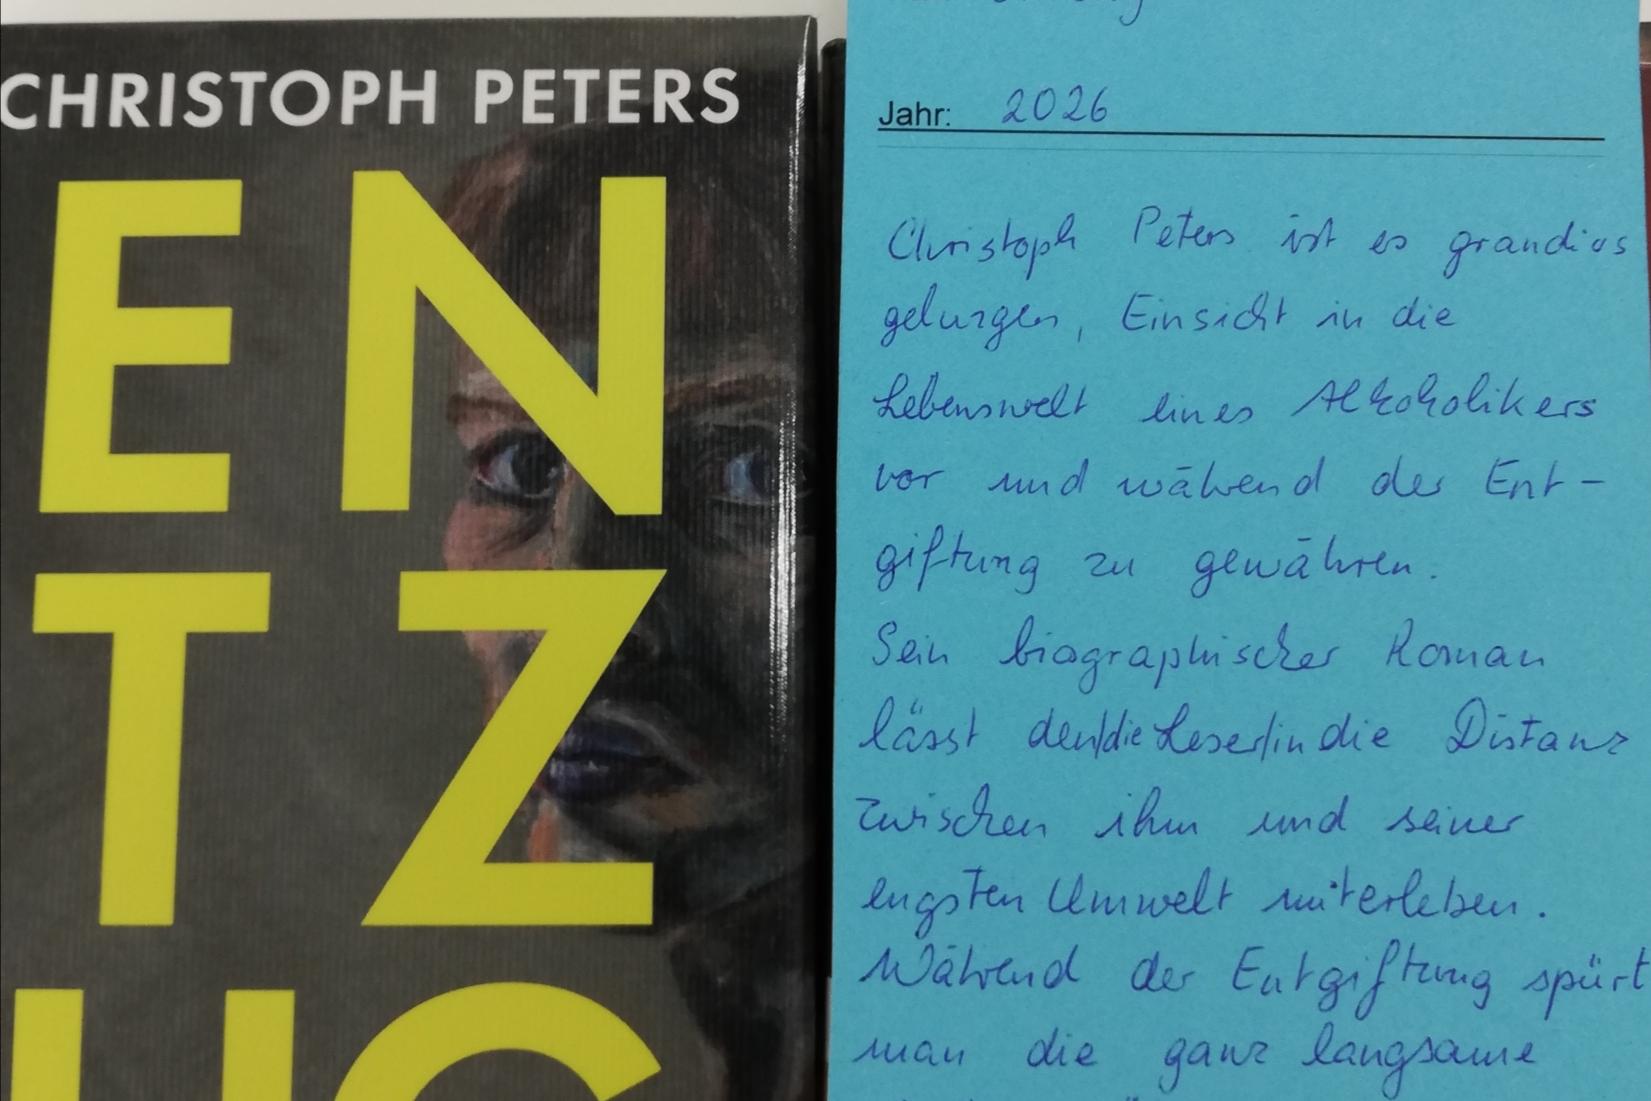 CHRISTOPH PETERS
EN
TZ
UG
Jahr: 2026
Christoph Peters ist es grandios
gelungen, Einsicht in die
Lebenswelt eines Alkoholikers
vor und während der Ent-
giftung zu gewähren.
Sein biographischer Roman
lässt den/die Leser/in die Distanz
zwischen ihm und seiner
engsten Umwelt miterleben.
Während der Entgiftung spürt
man die ganz langsame